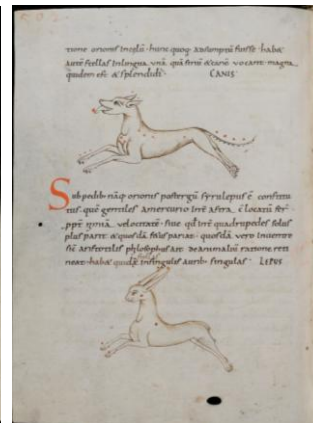 tione orionis in celū· hunc quoq· assumptū fuisse· habꝫ
autē stellas in lingua unā quā sirīū & canē vocant· magna
quidem est· & splendidā· CANIS·
Sub pedib· nāq· orionis post tergū syru lepus ē constitu
tus· quē gentiles a mercurio intē astra· c̄locatū fer
velocitatē· siue qd̄ intē quadrupedes solus
plus parit· & quosdā fetus pariat· quosdā vero in utero
sū· aristotilis philosophus ait· de animaliū ratione reti
neat· habꝫ quidē in singulis aurib· singulas· LEPUS